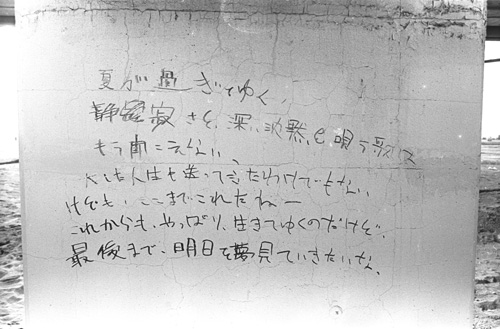 夏が過ぎてゆく、
静寂さと、深い沈黙と唄う歌は
もう聞こえない、
人生も送ってきたわけでもない
けども、ここまでこれたねー
これからも、やっぱり、生きてゆくのだけど、
最後まで、明日を夢見ていきたいな、